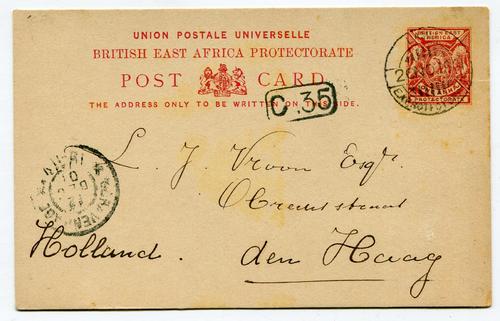 UNION POSTALE UNIVERSELLE
BRITISH EAST AFRICA PROTECTORATE
POST CARD
THE ADDRESS ONLY TO BE WRITTEN ON THIS SIDE.
BRITISH EAST AFRICA
PROTECTORATE
C .35
L. J. Vroon Esqr.
den Haag
Holland.